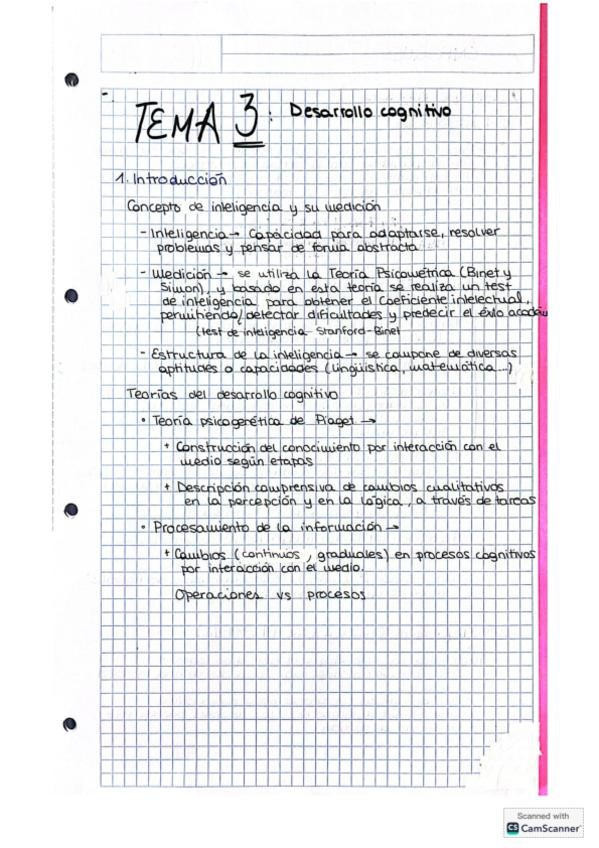 TEMA 3: Desarrollo cognitivo
1. Introducción
Concepto de inteligencia y su medición
- Inteligencia → Capacidad para adaptarse, resolver
problemas y pensar de forma abstracta
- Medición → se utiliza la Teoría Psicométrica (Binet y
Simon), y basado en esta teoría se realiza un test
de inteligencia para obtener el coeficiente intelectual,
permitiendo detectar dificultades y predecir el éxito
(test de inteligencia Stanford-Binet
- Estructura de la inteligencia → se compone de diversas
aptitudes o capacidades (lingüística, matemática...)
Teorías del desarrollo cognitivo
• Teoría psicogenética de Piaget →
+ Construcción del conocimiento por interacción con el
medio según etapas
+ Descripción comprensiva de cambios cualitativos
en la percepción y en la lógica, a través de tareas
• Procesamiento de la información →
+ Cambios (continuos, graduales) en procesos cognitivos
por interacción con el medio.
Operaciones vs procesos
Scanned with
CS CamScanner